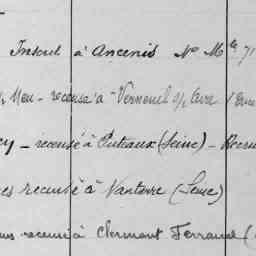 Inscrit à Ancenis No Mle 71
recensé à Verneuil s/ Avre
ey - recensé à Puteaux (Seine) - Recru
es recensé à Nanterre (Seine)
recensé à Clermont Ferrand (